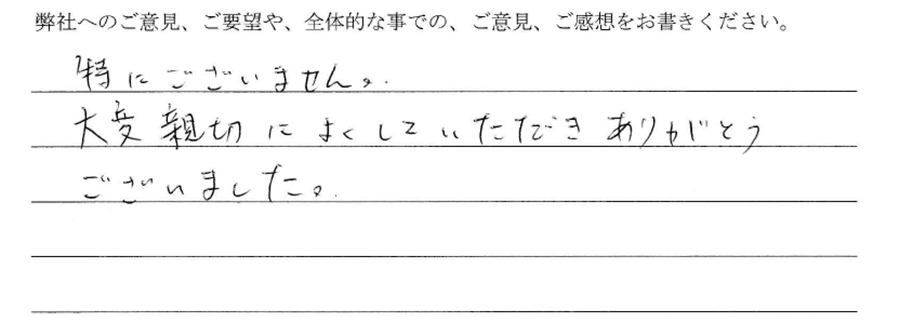 弊社へのご意見、ご要望や、全体的な事での、ご意見、ご感想をお書きください。
特にございません。
大変親切によくしていただきありがとう
ございました。